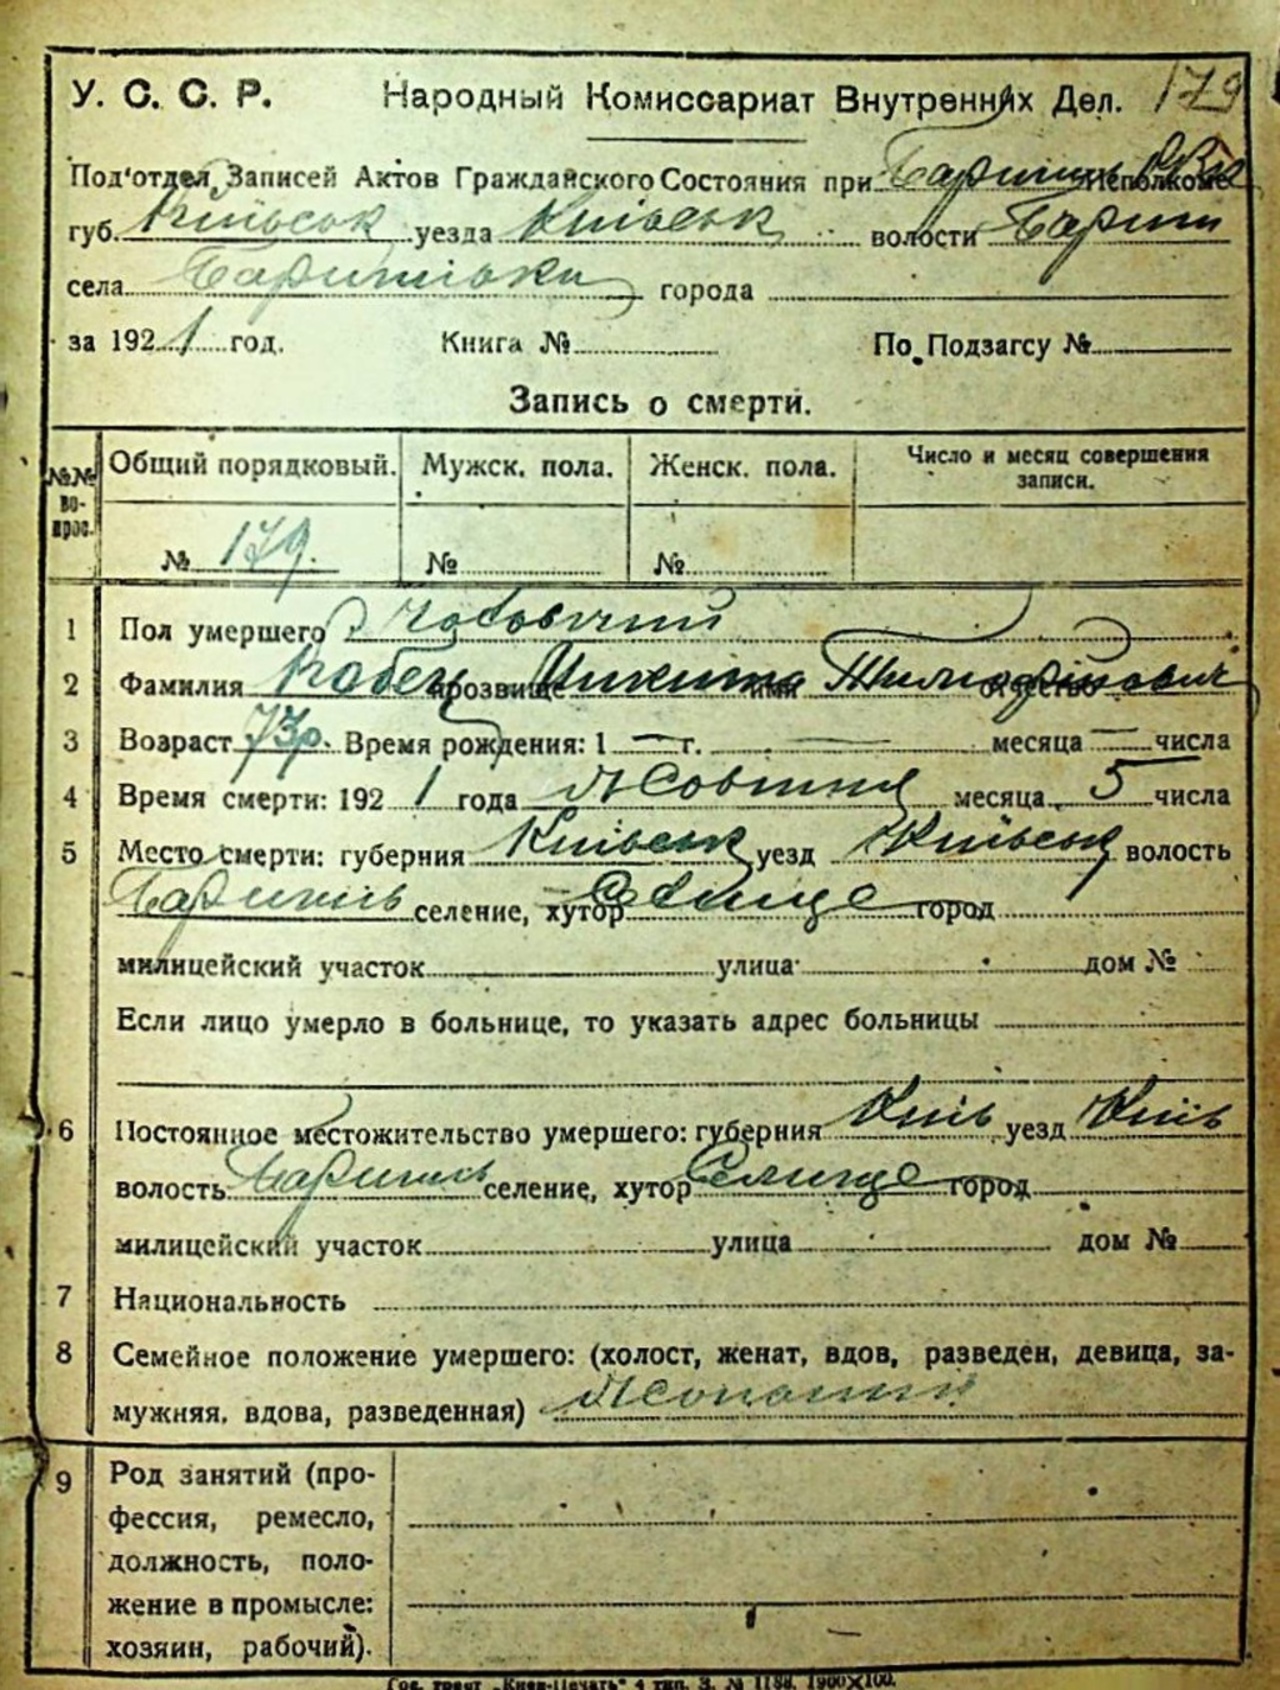 У. С. С. Р. Народный Комиссариат Внутренних Дел. 179
Под'отдел Записей Актов Гражданского Состояния при Баришів Исполкоме
губ. Київськ уезда Київськ волости Бариш
села Баришівки города
за 1921 год. Книга № По Подзагсу №
Запись о смерти.
№№ вопрос. Общий порядковый. Мужск. пола. Женск. пола. Число и месяц совершения записи.
№ 179. № №
1 Пол умершего Чоловичий
2 Фамилия Кабец прозвище Микита имя Тимофійович отчество
3 Возраст 73р. Время рождения: 1 — г. — месяца — числа
4 Время смерти: 1921 года Жовтня месяца 5 числа
5 Место смерти: губерния Київськ уезд Київськ волость
Баришів селение, хутор Селище город
милицейский участок улица дом №
Если лицо умерло в больнице, то указать адрес больницы
6 Постоянное местожительство умершего: губерния Київ уезд Київ
волость Баришів селение, хутор Селище город
милицейский участок улица дом №
7 Национальность
8 Семейное положение умершего: (холост, женат, вдов, разведен, девица, за-
мужняя, вдова, разведенная) Жонатий
9 Род занятий (про-
фессия, ремесло,
должность, поло-
жение в промысле:
хозяин, рабочий).
Гос. трест „Киев-Печать" 4 тип. З. № 1188. 1900×100.